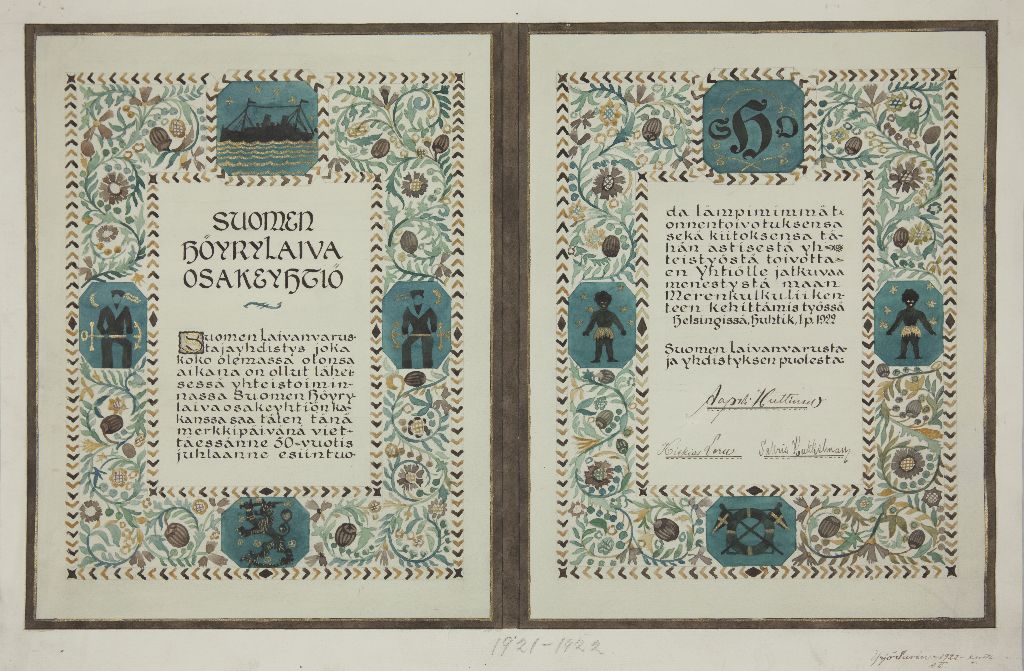 SUOMEN
HÖYRYLAIVA
OSAKEYHTIÖ
Suomen Laivanvarus-
tajayhdistys joka
koko olemassa olonsa
aikana on ollut lähei-
sessä yhteistoimin-
nassa Suomen Höyry-
laivaosakeyhtiön ka-
kanssa saa täten tänä
merkkipäivänä viet-
täessänne 50-vuotis
juhlaanne esiintuo-
S H O
da lämpimimmät
onnentoivotuksensa
sekä kiitoksensa tä-
hän astisesta yh-
teistyöstä toivotta-
en Yhtiölle jatkuvaa
menestystä maan
Merenkulkuliiken-
teen kehittämistyössä
Helsingissä, Huhtik. 1 p. 1922
Suomen Laivanvarusta-
ja yhdistyksen puolesta:
1921-1922